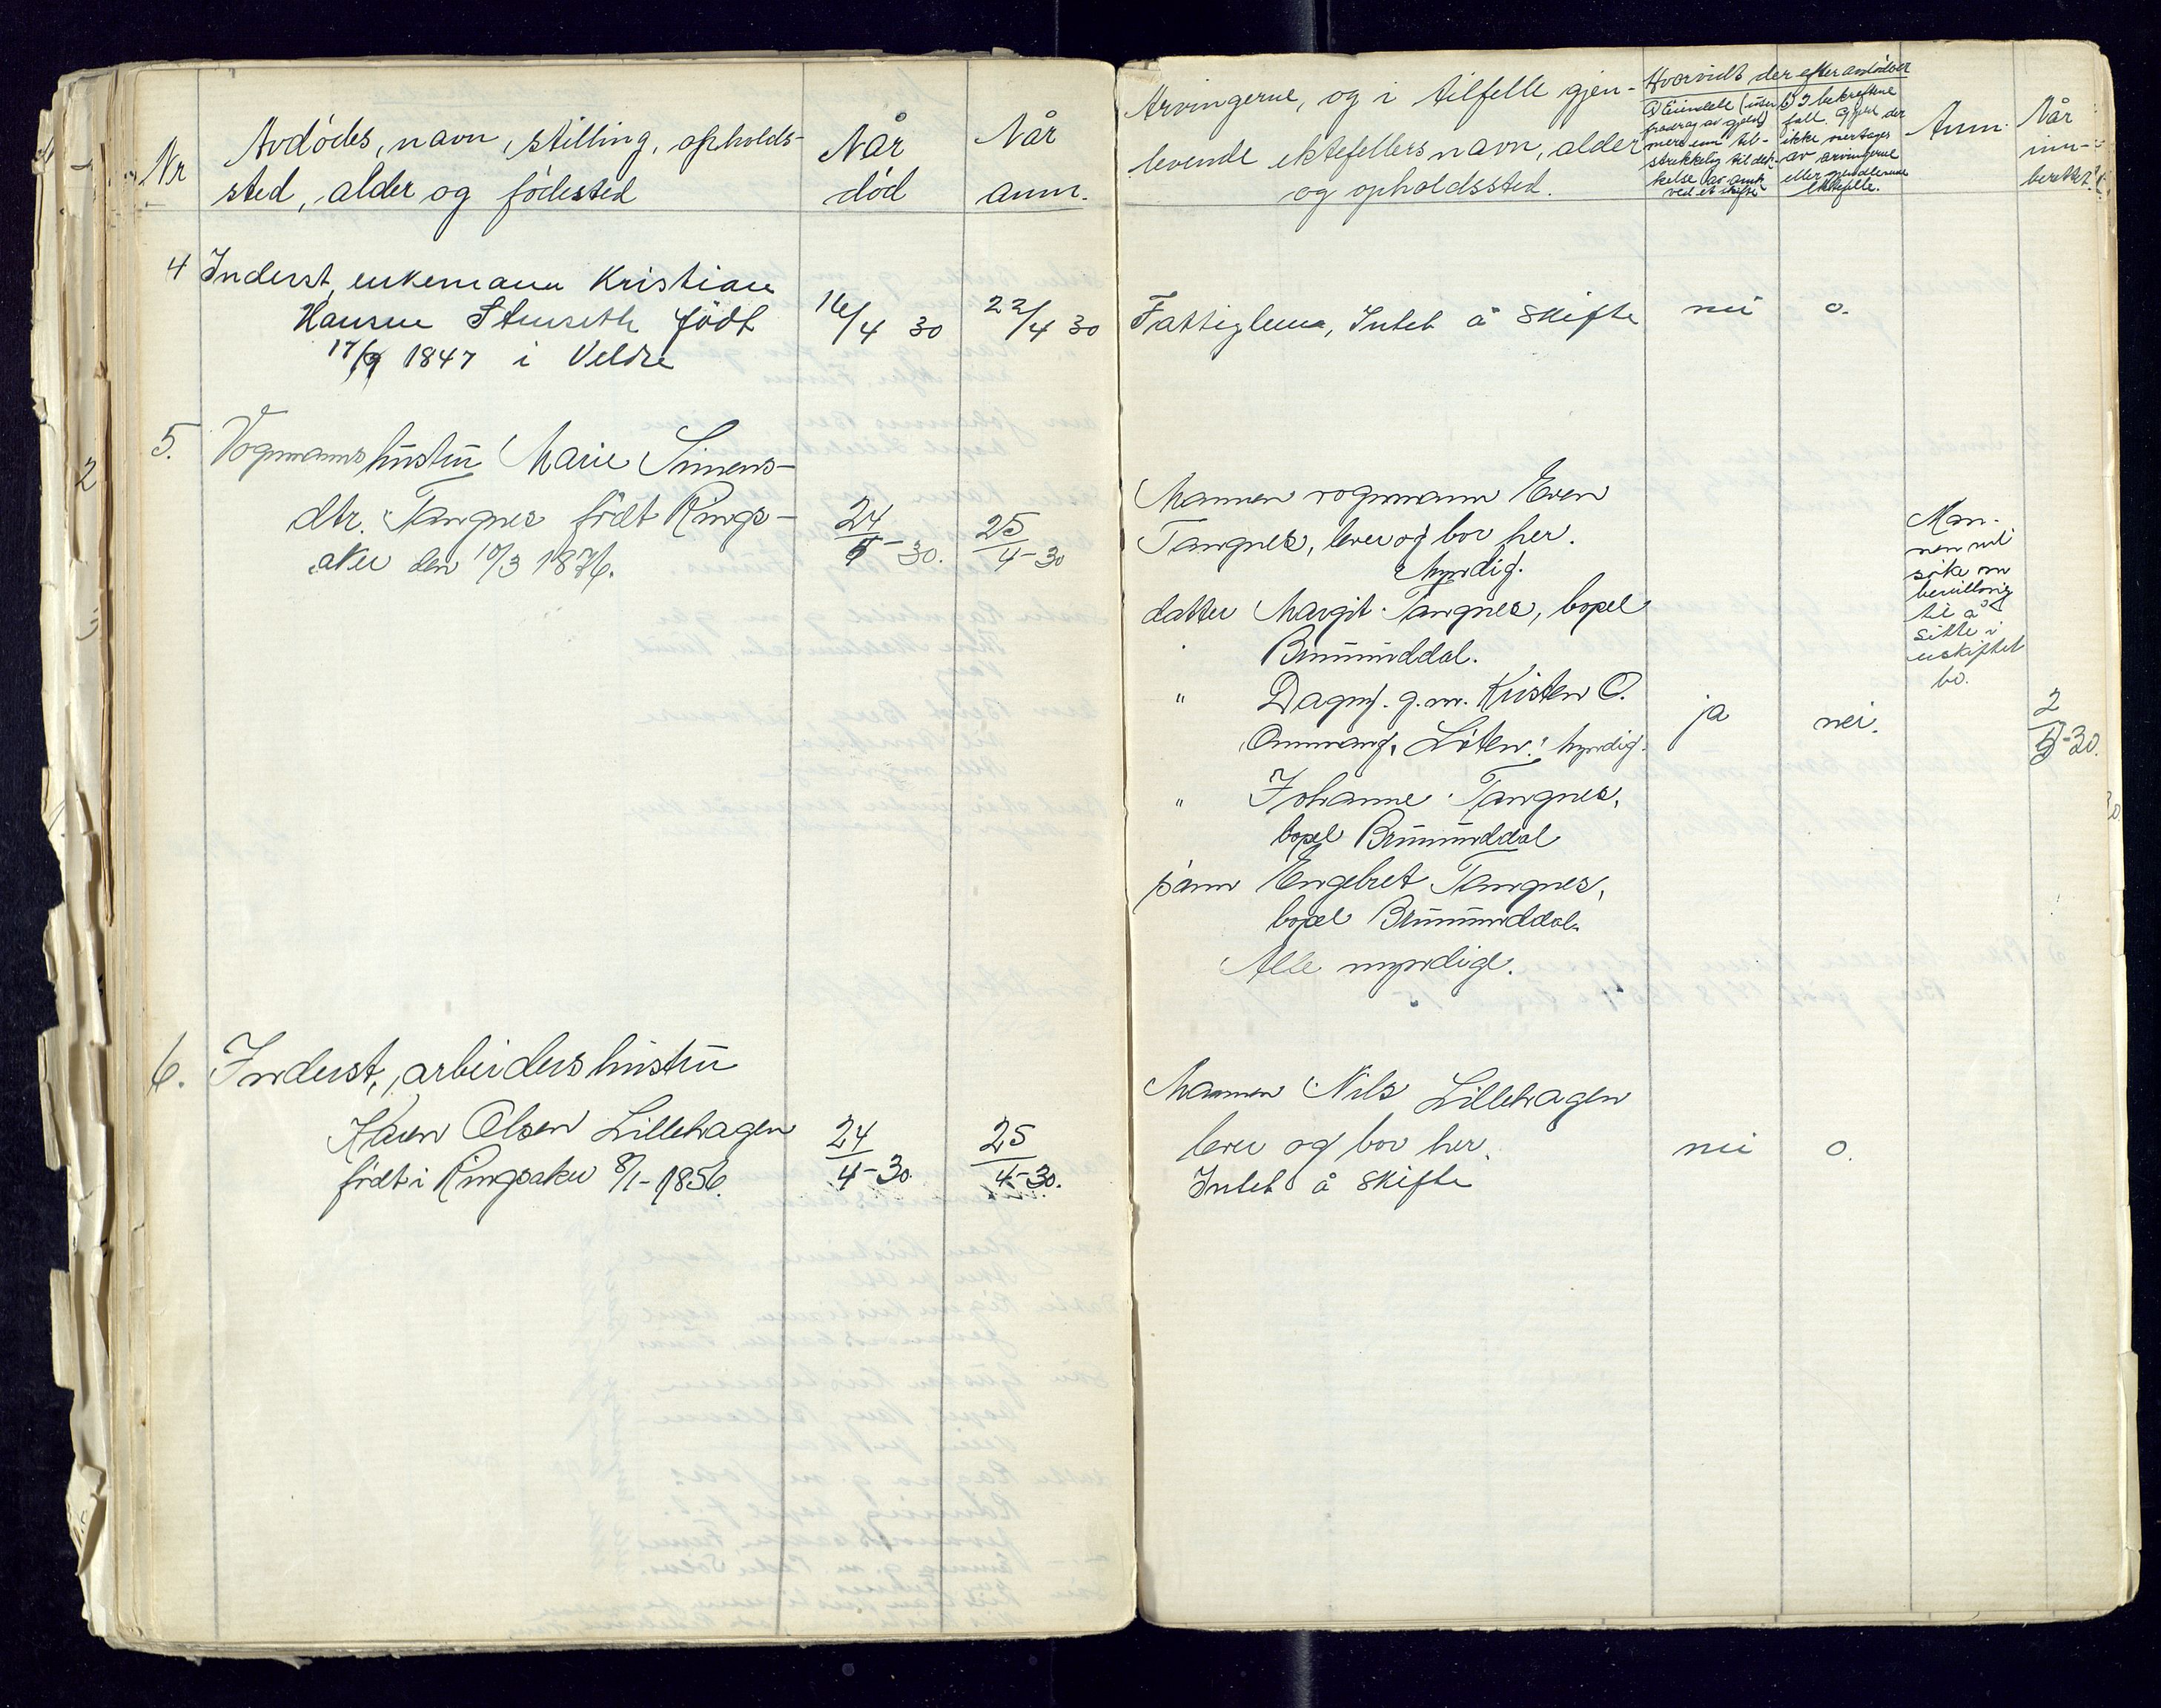 Nr
Avdödes, navn, stilling, opholds-
sted, alder og födested
Når
död
Når
anm.
Arvingerne, og i tilfelle gjen-
levende ektefellers navn, alder
og opholdssted.
Hvorvidt der efter avdöde er
a) Eiendele (uten
fradrag av gjeld)
mere enn til-
strekkelig til dek-
kelse av omk
ved et skifte
b) I bekreftene
fall. Gjeld der
ikke overtages
av arvingerne
eller gjenlevende
ektefelle.
Anm.
Når
inn-
berettet
4 Inderst, enkemann Kristian
Hansen Stenseth födt
17/9 1847 i Veldre
16/4 30
22/4 30
Fattiglem, Intet å skifte
nei
o.
5. Vognmannshustru Marie Simens-
dtr. Tangnes födt Rings-
aker den 10/3 1876.
24/4-30.
25/4-30
Mannen vognmann Even
Tangnes, lever og bor her.
Myndig.
datter Margit Tangnes, bopel
Brumunddal.
" Dagny g.m. Kristen O.
Ommang, Löten. myndig.
" Johanne Tangnes,
bopel Brumunddal
sönn Engebret Tangnes,
bopel Brumunddal.
Alle myndige.
ja
nei.
Man-
nen vil
söke om
bevilling
til å
sitte i
uskiftet
bo.
2/5-30.
6. Inderst, arbeidershustru
Karen Olsen Lillehagen
födt i Ringsaker 8/1-1856.
24/4-30.
25/4-30.
Mannen Nils Lillehagen
lever og bor her.
Intet å skifte
nei
o.